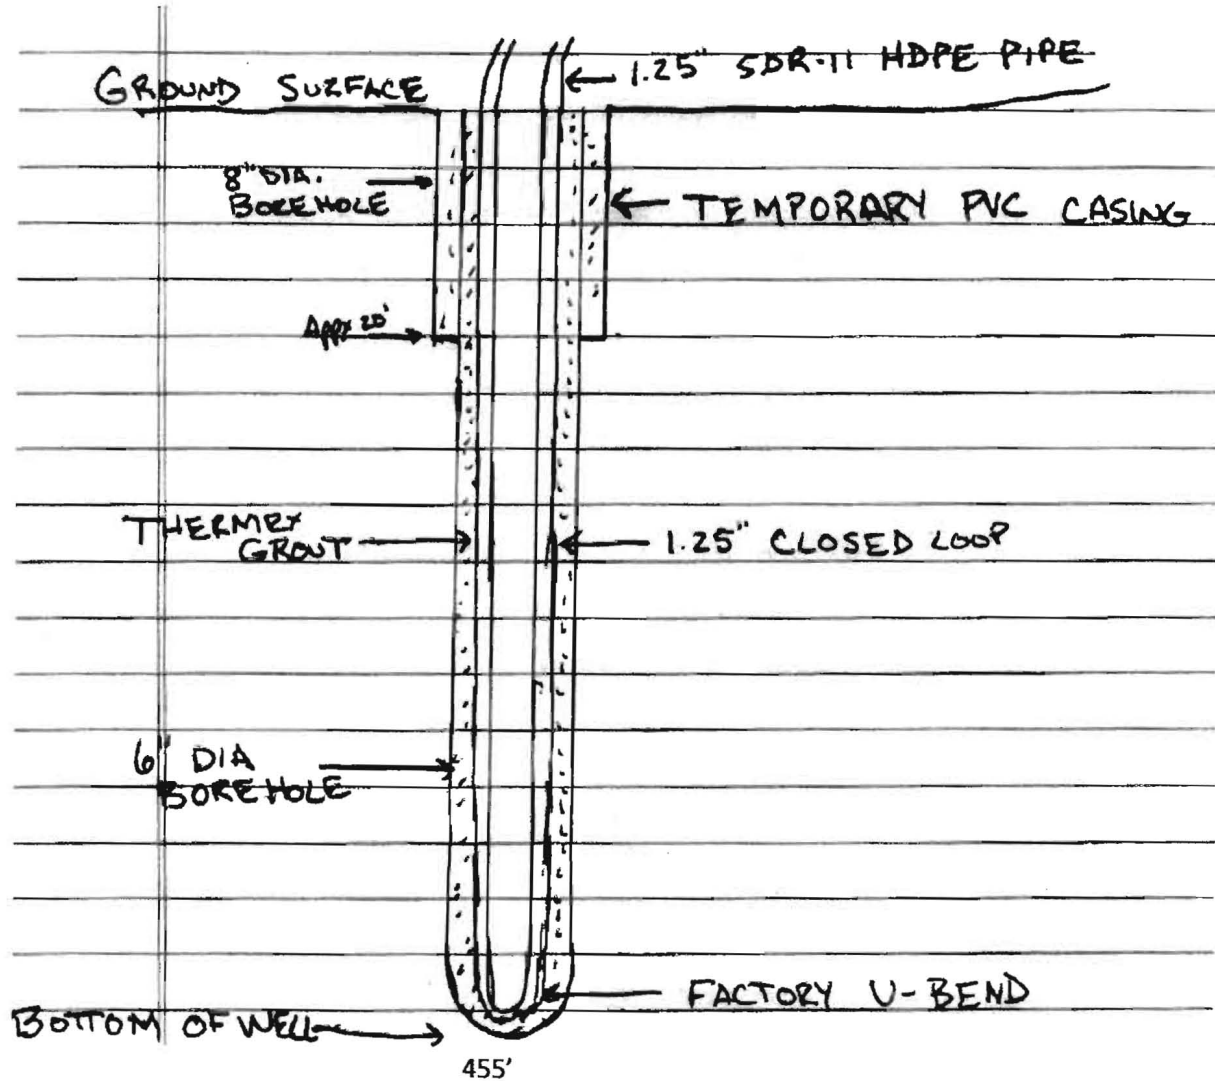 1.25" SDR-11 HDPE PIPE
GROUND SURFACE
8" DIA.
BOREHOLE
TEMPORARY PVC CASING
Appx 20'
THERMEX
GROUT
1.25" CLOSED LOOP
6" DIA
BOREHOLE
FACTORY U-BEND
BOTTOM OF WELL
455'